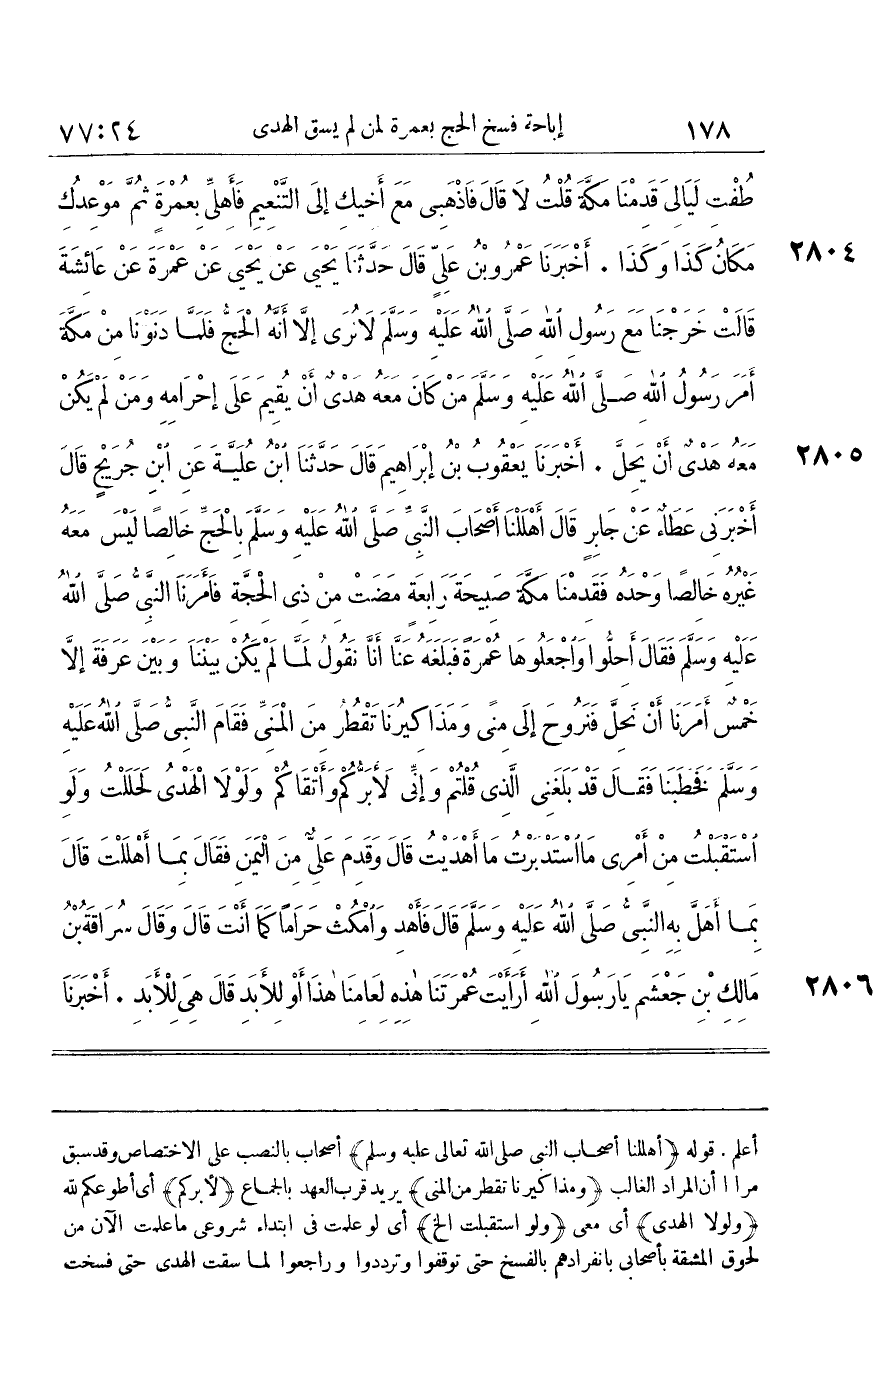 ١٧٨ إباحة فسخ الحج بعمرة لمن لم يسق الهدى ٢٤:٧٧
طُفْتِ لَيَالِىَ قَدِمْنَا مَكَّةَ قُلْتُ لَا قَالَ فَاذْهَبِى مَعَ أَخِيكِ إِلَى التَّنْعِيمِ فَأَهِلِّى بِعُمْرَةٍ ثُمَّ مَوْعِدُكِ
مَكَانُ كَذَا وَكَذَا . أَخْبَرَنَا عَمْرُو بْنُ عَلِىٍّ قَالَ حَدَّثَنَا يَحْيَى عَنْ يَحْيَى عَنْ عَمْرَةَ عَنْ عَائِشَةَ ٢٨٠٤
قَالَتْ خَرَجْنَا مَعَ رَسُولِ ٱللّٰهِ صَلَّى ٱللّٰهُ عَلَيْهِ وَسَلَّمَ لَا نُرَى إِلَّا أَنَّهُ الْحَجُّ فَلَمَّا دَنَوْنَا مِنْ مَكَّةَ
أَمَرَ رَسُولُ ٱللّٰهِ صَلَّى ٱللّٰهُ عَلَيْهِ وَسَلَّمَ مَنْ كَانَ مَعَهُ هَدْىٌ أَنْ يُقِيمَ عَلَى إِحْرَامِهِ وَمَنْ لَمْ يَكُنْ
مَعَهُ هَدْىٌ أَنْ يَحِلَّ . أَخْبَرَنَا يَعْقُوبُ بْنُ إِبْرَاهِيمَ قَالَ حَدَّثَنَا ٱبْنُ عُلَيَّةَ عَنِ ٱبْنِ جُرَيْجٍ قَالَ ٢٨٠٥
أَخْبَرَنِى عَطَاءٌ عَنْ جَابِرٍ قَالَ أَهْلَلْنَا أَصْحَابَ النَّبِىِّ صَلَّى ٱللّٰهُ عَلَيْهِ وَسَلَّمَ بِالْحَجِّ خَالِصًا لَيْسَ مَعَهُ
غَيْرُهُ خَالِصًا وَحْدَهُ فَقَدِمْنَا مَكَّةَ صَبِيحَةَ رَابِعَةٍ مَضَتْ مِنْ ذِى الْحِجَّةِ فَأَمَرَنَا النَّبِىُّ صَلَّى ٱللّٰهُ
عَلَيْهِ وَسَلَّمَ فَقَالَ أَحِلُّوا وَٱجْعَلُوهَا عُمْرَةً فَبَلَغَهُ عَنَّا أَنَّا نَقُولُ لَمَّا لَمْ يَكُنْ بَيْنَنَا وَبَيْنَ عَرَفَةَ إِلَّا
خَمْسٌ أَمَرَنَا أَنْ نَحِلَّ فَنَرُوحَ إِلَى مِنًى وَمَذَاكِيرُنَا تَقْطُرُ مِنَ الْمَنِىِّ فَقَامَ النَّبِىُّ صَلَّى ٱللّٰهُ عَلَيْهِ
وَسَلَّمَ فَخَطَبَنَا فَقَالَ قَدْ بَلَغَنِى الَّذِى قُلْتُمْ وَإِنِّى لَأَبَرُّكُمْ وَأَتْقَاكُمْ وَلَوْلَا الْهَدْىُ لَحَلَلْتُ وَلَوِ
ٱسْتَقْبَلْتُ مِنْ أَمْرِى مَا ٱسْتَدْبَرْتُ مَا أَهْدَيْتُ قَالَ وَقَدِمَ عَلِىٌّ مِنَ الْيَمَنِ فَقَالَ بِمَا أَهْلَلْتَ قَالَ
بِمَا أَهَلَّ بِهِ النَّبِىُّ صَلَّى ٱللّٰهُ عَلَيْهِ وَسَلَّمَ قَالَ فَأَهْدِ وَٱمْكُثْ حَرَامًا كَمَا أَنْتَ قَالَ وَقَالَ سُرَاقَةُ بْنُ
مَالِكِ بْنِ جَعْشَمٍ يَا رَسُولَ ٱللّٰهِ أَرَأَيْتَ عُمْرَتَنَا هٰذِهِ لِعَامِنَا هٰذَا أَوْ لِلْأَبَدِ قَالَ هِىَ لِلْأَبَدِ . أَخْبَرَنَا ٢٨٠٦
أعلم . قوله ﴿أهللنا أصحاب النبى صلى الله تعالى عليه وسلم﴾ أصحاب بالنصب على الاختصاص وقد سبق
مرارا أن المراد الغالب ﴿ومذاكيرنا تقطر من المنى﴾ يريد قرب العهد بالجماع ﴿لأبركم﴾ أى أطوعكم لله
﴿ولولا الهدى﴾ أى معى ﴿ولو استقبلت الخ﴾ أى لو علمت فى ابتداء شروعى ما علمت الآن من
لحوق المشقة بأصحابى بانفرادهم بالفسخ حتى توقفوا وترددوا وراجعوا لما سقت الهدى حتى فسخت